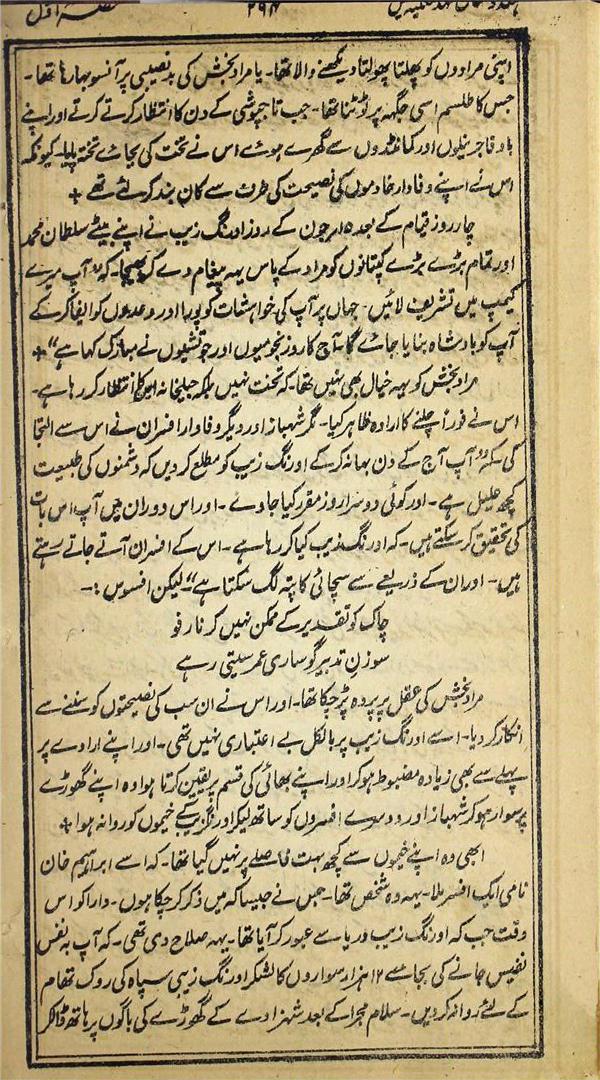 ۲۹۴
اپنی مرادوں کو پھلتا پھولتا دیکھنے والا تھا۔ یا مراد بخش کی بدنصیبی پر آنسو بہا رہا تھا۔
جس کا طلسم اسی جگہہ پر ٹوٹنا تھا۔ جب تاجپوشی کے دن کا انتظار کرتے کرتے اور اپنے
باوفا جرنیلوں اور کمانڈروں سے گھرے ہوئے اس نے تخت کی بجائے تختہ پایا۔ کیونکہ
اس نے اپنے وفادار خادموں کی نصیحت کی طرف سے کان بند کر لئے تھے +
چار روز قیام کے بعد ۱۵ جون کے روز اورنگ زیب نے اپنے بیٹے سلطان محمد
اور تمام بڑے بڑے کپتانوں کو مراد کے پاس یہہ پیغام دے کر بھیجا۔ کہ "آپ میرے
کیمپ میں تشریف لائیں۔ جہاں پر آپ کی خواہشات کو پورا اور وعدوں کو ایفا کر کے
آپ کو بادشاہ بنایا جائے گا۔ آج کا روز نجومیوں اور جوتشیوں نے مبارک کہا ہے" +
مراد بخش کو یہہ خیال بھی نہیں تھا۔ کہ تخت نہیں بلکہ جیلخانہ اس کا انتظار کر رہا ہے۔
اس نے فوراً چلنے کا ارادہ ظاہر کیا۔ مگر شہباز اور دیگر وفادار افسران نے اس سے التجا
کی۔ کہ "آپ آج کے دن بہانہ کر کے اورنگ زیب کو مطلع کر دیں کہ دشمنوں کی طبیعت
کچھ علیل ہے۔ اور کوئی دوسرا روز مقرر کیا جاوے۔ اور اس دوران میں آپ اس بات
کی تحقیق کر سکتے ہیں۔ کہ اورنگ زیب کیا کر رہا ہے۔ اس کے افسران آتے جاتے رہتے
ہیں۔ اور ان کے ذریعے سے سچائی کا پتہ لگ سکتا ہے"۔ لیکن افسوس :۔
چاک کو تقدیر کے ممکن نہیں کرنا رفو
سوزنِ تدبیر گو ساری عمر سیتی رہے
مراد بخش کی عقل پر پردہ پڑ چکا تھا۔ اور اس نے ان سب کی نصیحتوں کو سننے سے
انکار کر دیا۔ اسے اورنگ زیب پر بالکل بے اعتباری نہیں تھی۔ اور اپنے ارادے پر
پہلے سے بھی زیادہ مضبوط ہو کر اور اپنے بھائی کی قسم پر یقین کرتا ہوا وہ اپنے گھوڑے
پر سوار ہو کر شہباز اور دوسرے افسروں کو ساتھ لیکر اورنگزیب کے خیموں کو روانہ ہوا +
ابھی وہ اپنے خیموں سے کچھ بہت فاصلے پر نہیں گیا تھا۔ کہ اسے ابراہیم خان
نامی ایک افسر ملا۔ یہہ وہ شخص تھا۔ جس نے جیسا کہ میں ذکر کر چکا ہوں۔ دارا کو اس
وقت جب کہ اورنگ زیب دریا سے عبور کر آیا تھا۔ یہہ صلاح دی تھی۔ کہ آپ بہ نفس
نفیس جانے کی بجائے ۱۲ ہزار سواروں کا لشکر اورنگ زیبی سپاہ کی روک تھام
کے لئے روانہ کر دیں۔ سلام مجرا کے بعد شہزادے کے گھوڑے کی باگوں پر ہاتھ ڈالکر